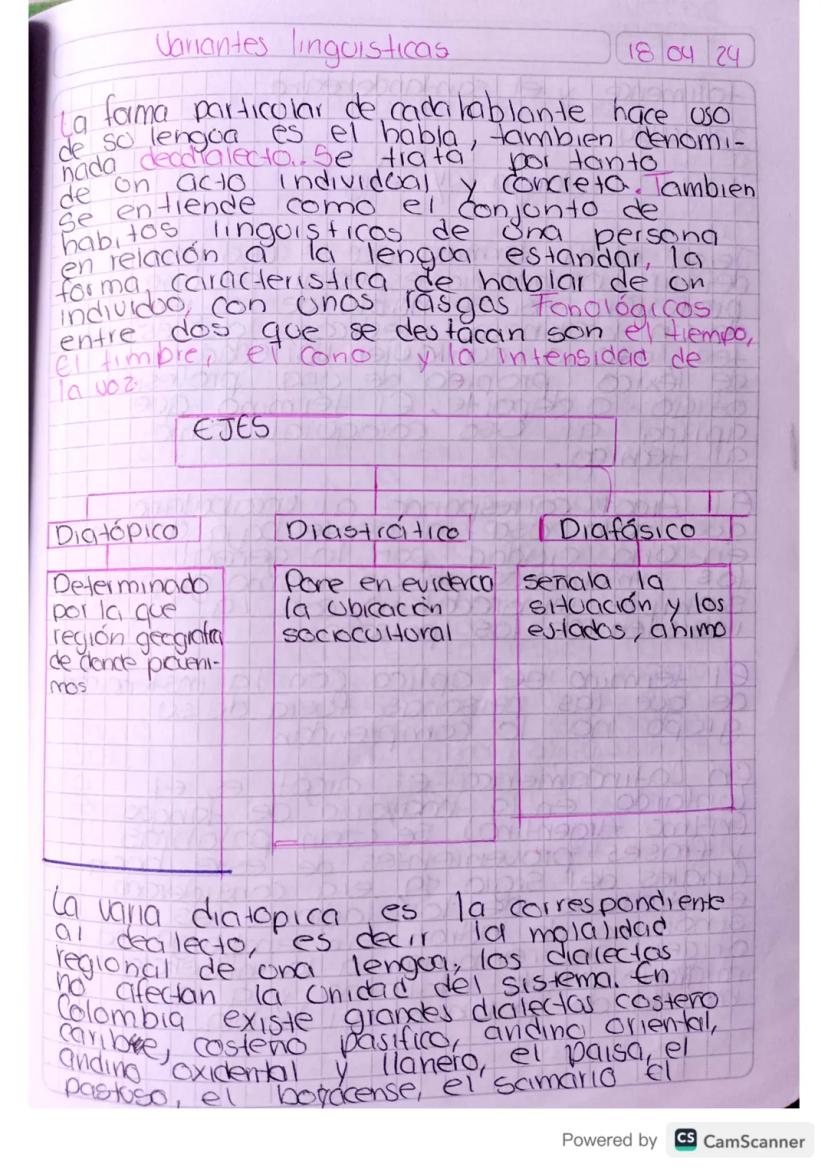 Variantes linguisticas
18 04 24
La forma particular de cada hablante hace uso
de su lengua es el habla, tambien denomi-
nada deodialecto. Se trata por tanto
de un acto individual y concreto. Tambien
se entiende como el conjunto de
habitos linguisticos de una persona
en relación a la lengua estandar, la
forma, caracteristica de hablar de un
individuo, con unos rasgos Fonológicos
entre dos que se destacan son el tiempo,
el timbre, el cono y la intensidad de
la voz.
EJES
Diatópico
Diastrático
Diafásico
Determinado
por la que
región geografa
de donde proveni-
mos
Pone en evidenca
la ubicación
sociocultural
señala la
situación y los
estados, animo
La varia diatopica es la correspondiente
al dealecto, es decir la molalidad
regional de una lengua, los dialectos
no afectan la unidad del sistema. En
Colombia existe grandes dialectos costero
caribe, costeño pasifico, andino oriental,
andino oxidental y llanero, el paisa, el
pastuso, el bogacense, el samario El
Powered by CS CamScanner